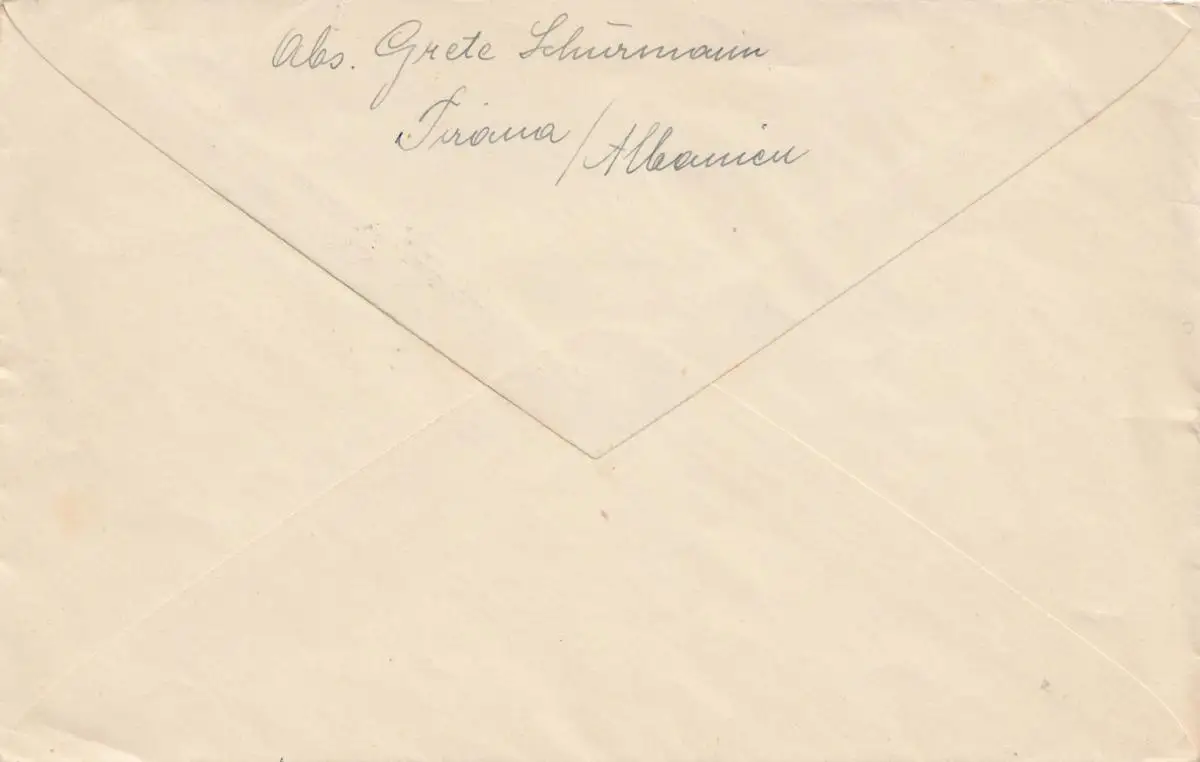 Abs. Grete Schürmann
Tirana / Albanien